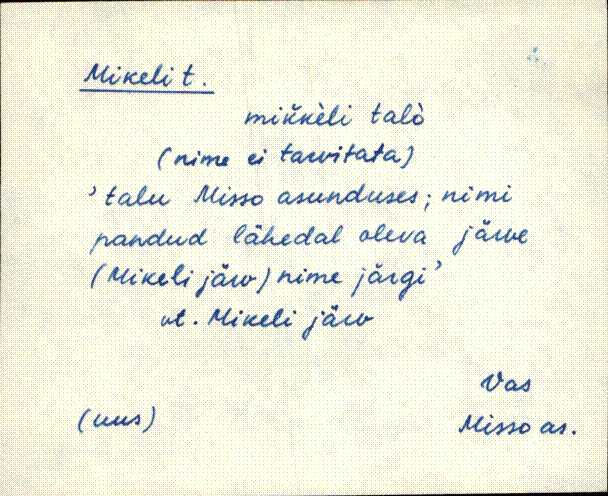 Mikeli t.
mik̆kèli talò
(nime ei tarvitata)
’talu Misso asunduses; nimi
pandud lähedal oleva järve
(Mikeli järv) nime järgi’
vt. Mikeli järv
Vas
(uus)
Misso as.